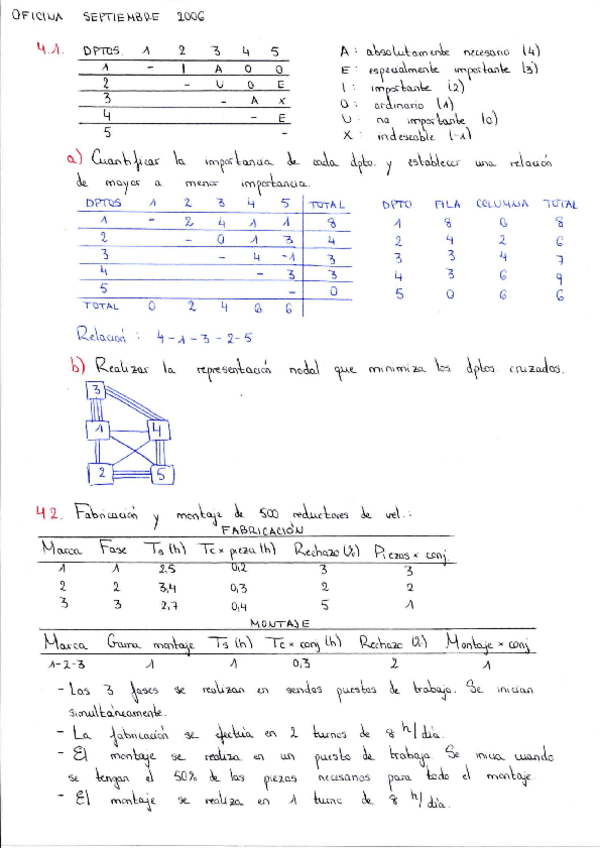 OFICINA SEPTIEMBRE 2006
4.1. DPTOS. 1 2 3 4 5
1 - I A O O
2 - U O E
3 - A X
4 - E
5 -
A: absolutamente necesario (4)
E: especialmente importante (3)
I: importante (2)
O: ordinario (1)
U: no importante (0)
X: indeseable (-1)
a) Cuantificar la importancia de cada dpto. y establecer una relación
de mayor a menor importancia.
DPTOS 1 2 3 4 5 TOTAL
1 - 2 4 1 1 8
2 - 0 1 3 4
3 - 4 -1 3
4 - 3 3
5 - 0
TOTAL 0 2 4 6 6
DPTO FILA COLUMNA TOTAL
1 8 0 8
2 4 2 6
3 3 4 7
4 3 6 9
5 0 6 6
Relación: 4-1-3-2-5
b) Realizar la representación nodal que minimiza los dptos. cruzados.
3
1 4
2 5
4.2. Fabricación y montaje de 500 reductores de vel.:
FABRICACIÓN
Marca Fase Ts (h) Tc x pieza (h) Rechazo (%) Piezas x conj.
1 1 2,5 0,2 3 3
2 2 3,4 0,3 2 2
3 3 2,7 0,4 5 1
MONTAJE
Marca Gama montaje Ts (h) Tc x conj (h) Rechazo (%) Montaje x conj
1-2-3 1 1 0,3 2 1
- Las 3 fases se realizan en sendos puestos de trabajo. Se inician
simultáneamente.
- La fabricación se efectúa en 2 turnos de 8 h/día.
- El montaje se realiza en un puesto de trabajo. Se inicia cuando
se tengan el 50% de las piezas necesarias para todo el montaje.
- El montaje se realiza en 1 turno de 8 h/día.